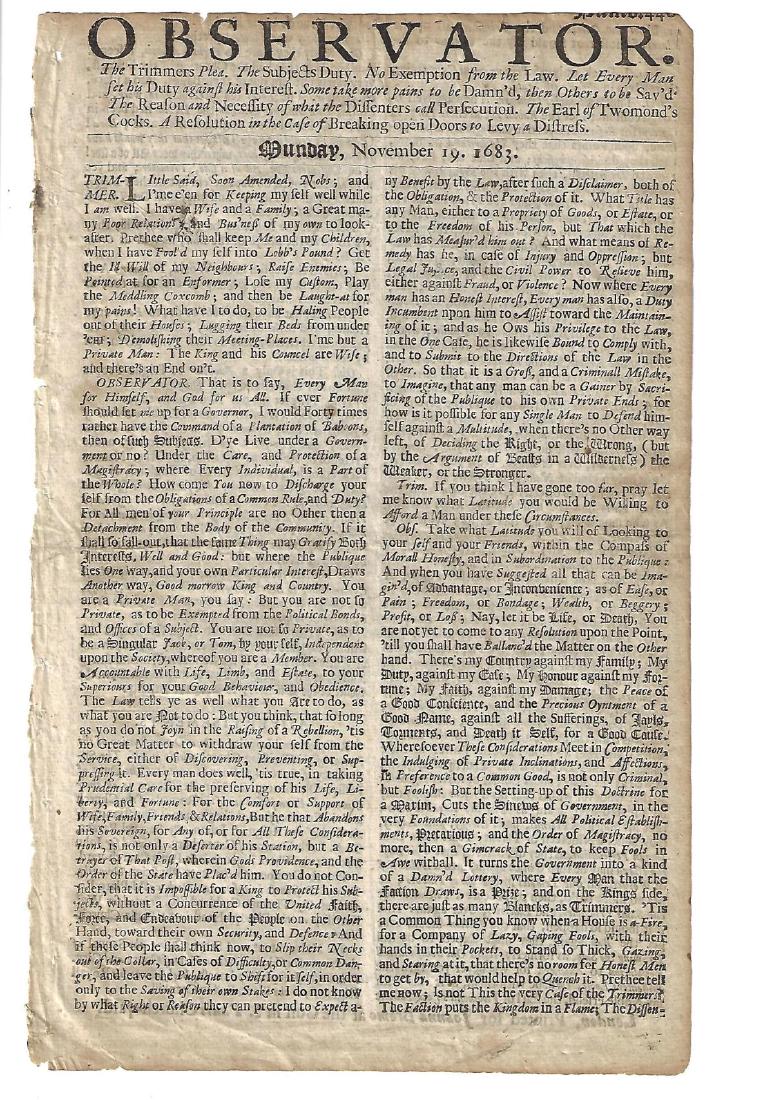 OBSERVATOR.
The Trimmers Plea. The Subjects Duty. No Exemption from the Law. Let Every Man
set his Duty against his Interest. Some take more pains to be Damn'd, then Others to be Sav'd.
The Reason and Necessity of what the Dissenters call Persecution. The Earl of Twomond's
Cocks. A Resolution in the Case of Breaking open Doors to Levy a Distress.
Munday, November 19. 1683.
TRIM- Little Said, Soon Amended, Nobs; and
MER. I'me e'en for Keeping my self well while
I am well. I have a Wife and a Family; a Great ma-
ny Poor Relations, and Bus'ness of my own to look-
after. Prethee who shall keep Me and my Children,
when I have Fool'd my self into Lobb's Pound? Get
the Ill Will of my Neighbours; Raise Enemies; Be
Pointed at for an Enformer; Lose my Custom, Play
the Meddling Coxcomb; and then be Laught-at for
my pains! What have I to do, to be Haling People
out of their Houses; Lugging their Beds from under
'em; Demolishing their Meeting-Places. I'me but a
Private Man: The King and his Councel are Wise;
and there's an End on't.
OBSERVATOR. That is to say, Every Man
for Himself, and God for us All. If ever Fortune
should set me up for a Governor, I would Forty times
rather have the Command of a Plantation of Babons,
then of such Subjects. D'ye Live under a Govern-
ment or no? Under the Care, and Protection of a
Magistracy; where Every Individual, is a Part of
the Whole? How come You now to Discharge your
self from the Obligations of a Common Rule, and Duty?
For All men of your Principle are no Other then a
Detachment from the Body of the Community. If it
shall so fall-out, that the same Thing may Gratify Both
Interests, Well and Good: but where the Publique
lies One way, and your own Particular Interest, Draws
Another way, Good morrow King and Country. You
are a Private Man, you say: But you are not so
Private, as to be Exempted from the Political Bonds,
and Offices of a Subject. You are not so Private, as to
be a Singular Jack, or Tom, by your self, Independent
upon the Society, whereof you are a Member. You are
Accountable with Life, Limb, and Estate, to your
Superiours for your Good Behaviour, and Obedience.
The Law tells ye as well what you Are to do, as
what you are Not to do: But you think, that so long
as you do not Joyn in the Raising of a Rebellion, 'tis
no Great Matter to withdraw your self from the
Service, either of Discovering, Preventing, or Sup-
pressing it. Every man does well, 'tis true, in taking
Prudential Care for the preserving of his Life, Li-
berty, and Fortune: For the Comfort or Support of
Wife, Family, Friends, & Relations, But he that Abandons
his Sovereign, for Any of, or for All These Considera-
tions, is not only a Deserter of his Station, but a Be-
trayer of That Post, wherein Gods Providence, and the
Order of the State have Plac'd him. You do not Con-
sider, that it is Impossible for a King to Protect his Sub-
jects, without a Concurrence of the United Faith,
Force, and Endeavour of the People on the Other
Hand, toward their own Security, and Defence: And
if these People shall think now, to Slip their Necks
out of the Collar, in Cases of Difficulty, or Common Dan-
ger, and leave the Publique to Shift for it self, in order
only to the Saving of their own Stakes: I do not know
by what Right or Reason they can pretend to Expect a-
ny Benefit by the Law, after such a Disclaimer, both of
the Obligation, & the Protection of it. What Title has
any Man, either to a Propriety of Goods, or Estate, or
to the Freedom of his Person, but That which the
Law has Measur'd him out? And what means of Re-
medy has he, in case of Injury and Oppression; but
Legal Justice, and the Civil Power to Relieve him,
either against Fraud, or Violence? Now where Every
man has an Honest Interest, Every man has also, a Duty
Incumbent upon him to Assist toward the Maintain-
ing of it; and as he Ows his Privilege to the Law,
in the One Case, he is likewise Bound to Comply with,
and to Submit to the Directions of the Law in the
Other. So that it is a Gross, and a Criminall Mistake,
to Imagine, that any man can be a Gainer by Sacri-
ficing of the Publique to his own Private Ends; for
how is it possible for any Single Man to Defend him-
self against a Multitude, when there's no Other way
left, of Deciding the Right, or the Wrong, (but
by the Argument of Beasts in a Wilderness) the
Weaker, or the Stronger.
Trim. If you think I have gone too far, pray let
me know what Latitude you would be Willing to
Afford a Man under these Circumstances.
Obs. Take what Latitude you will of Looking to
your self and your Friends, within the Compass of
Morall Honesty, and in Subordination to the Publique:
And when you have Suggested all that can be Ima-
gin'd, of Advantage, or Inconvenience; as of Ease, or
Pain; Freedom, or Bondage; Wealth, or Beggery;
Profit, or Loss; Nay, let it be Life, or Death, You
are not yet to come to any Resolution upon the Point,
'till you shall have Ballanc'd the Matter on the Other
hand. There's my Country against my Family; My
Duty, against my Ease; My Honour against my For-
tune; My Faith, against my Damage; the Peace of
a Good Conscience, and the Precious Oyntment of a
Good Name, against all the Sufferings, of Jayls,
Torments, and Death it Self, for a Good Cause.
Wheresoever These Considerations Meet in Competition,
the Indulging of Private Inclinations, and Affections,
In Preference to a Common Good, is not only Criminal,
but Foolish: But the Setting-up of this Doctrine for
a Maxim, Cuts the Sinews of Government, in the
very Foundations of it; makes All Political Establish-
ments, Precarious; and the Order of Magistracy, no
more, then a Gimcrack of State, to keep Fools in
Awe withall. It turns the Government into a kind
of a Damn'd Lottery, where Every Man that the
Faction Draws, is a Prize; and on the Kings side,
there are just as many Blancks, as Trimmers. 'Tis
a Common Thing you know when a House is a-Fire,
for a Company of Lazy, Gaping Fools, with their
hands in their Pockets, to Stand so Thick, Gazing,
and Staring at it, that there's no room for Honest Men
to get by, that would help to Quench it. Prethee tell
me now; Is not This the very Case of the Trimmers?
The Faction puts the Kingdom in a Flame; The Dissen-